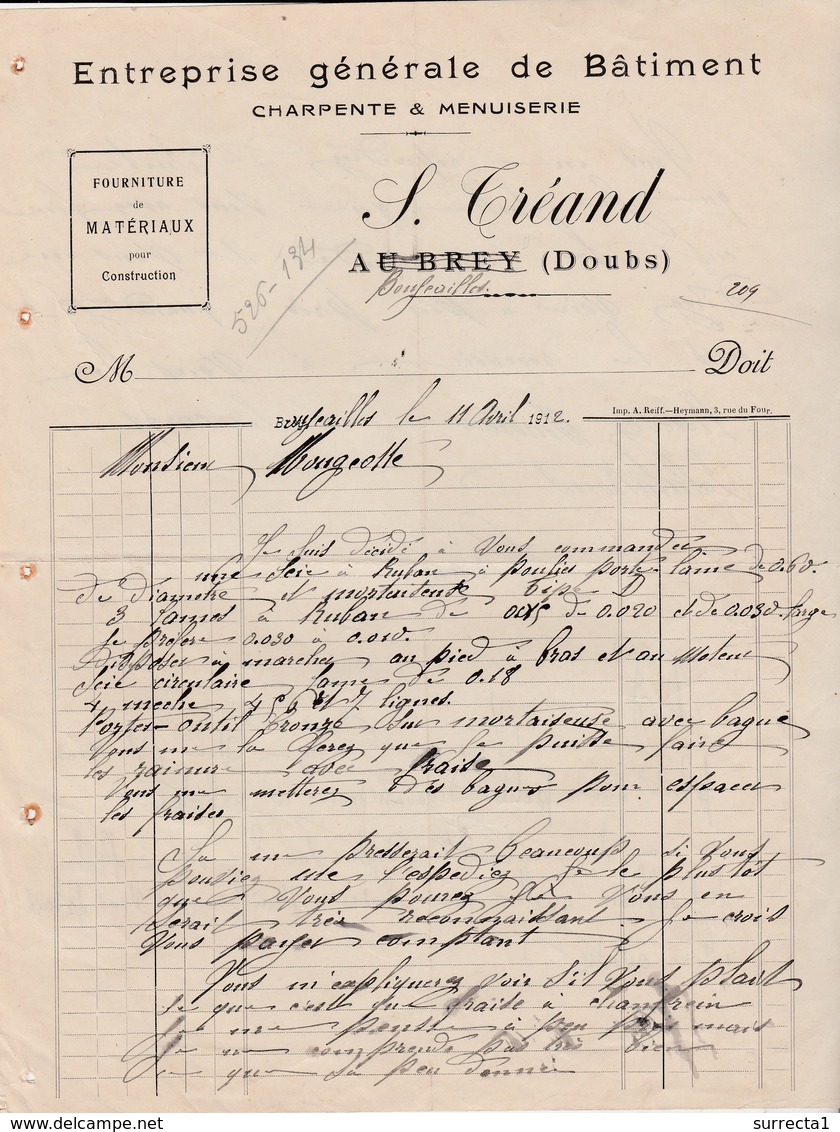 Entreprise générale de Bâtiment
CHARPENTE & MENUISERIE
FOURNITURE
de
MATÉRIAUX
pour
Construction
S. Tréand
AU BREY (Doubs)
526-134
209
M Doit
Imp. A. Reiff.-Heymann, 3, rue du Four.
le 11 Avril 1912.
Monsieur Mougeotte
Je suis décidé à Vous commander
une Scie à Ruban à poulies porte lame de 0.60
de diametre et mortaiseuse Tipe D
3 lames à Ruban de 0.015 de 0.020 et de 0.030 large
je préfere 0.030 à 0.010.
Disposer à marcher au pied à bras et au Moteur
Scie circulaire lame de 0.18
4 meche 4 5 6 et 7 lignes.
Portes-outil bronze sur mortaiseuse avec bague
Vous me la ferez que je puisse faire
les rainure avec fraise
Vous me metterez des bagues pour espacer
les fraises
Sa me presserait beaucoup si Vous
pouviez me l'espediez je le plus tôt
que Vous pourez je Vous en
serait très reconnaissant. Je crois
Vous payer comptant
Vous m'expliquerez voir s'il Vous plait
se que c'est que fraise à chanfrein
Je me pense à peu près mais
Je ne comprend pas très bien
se que sa peu donner